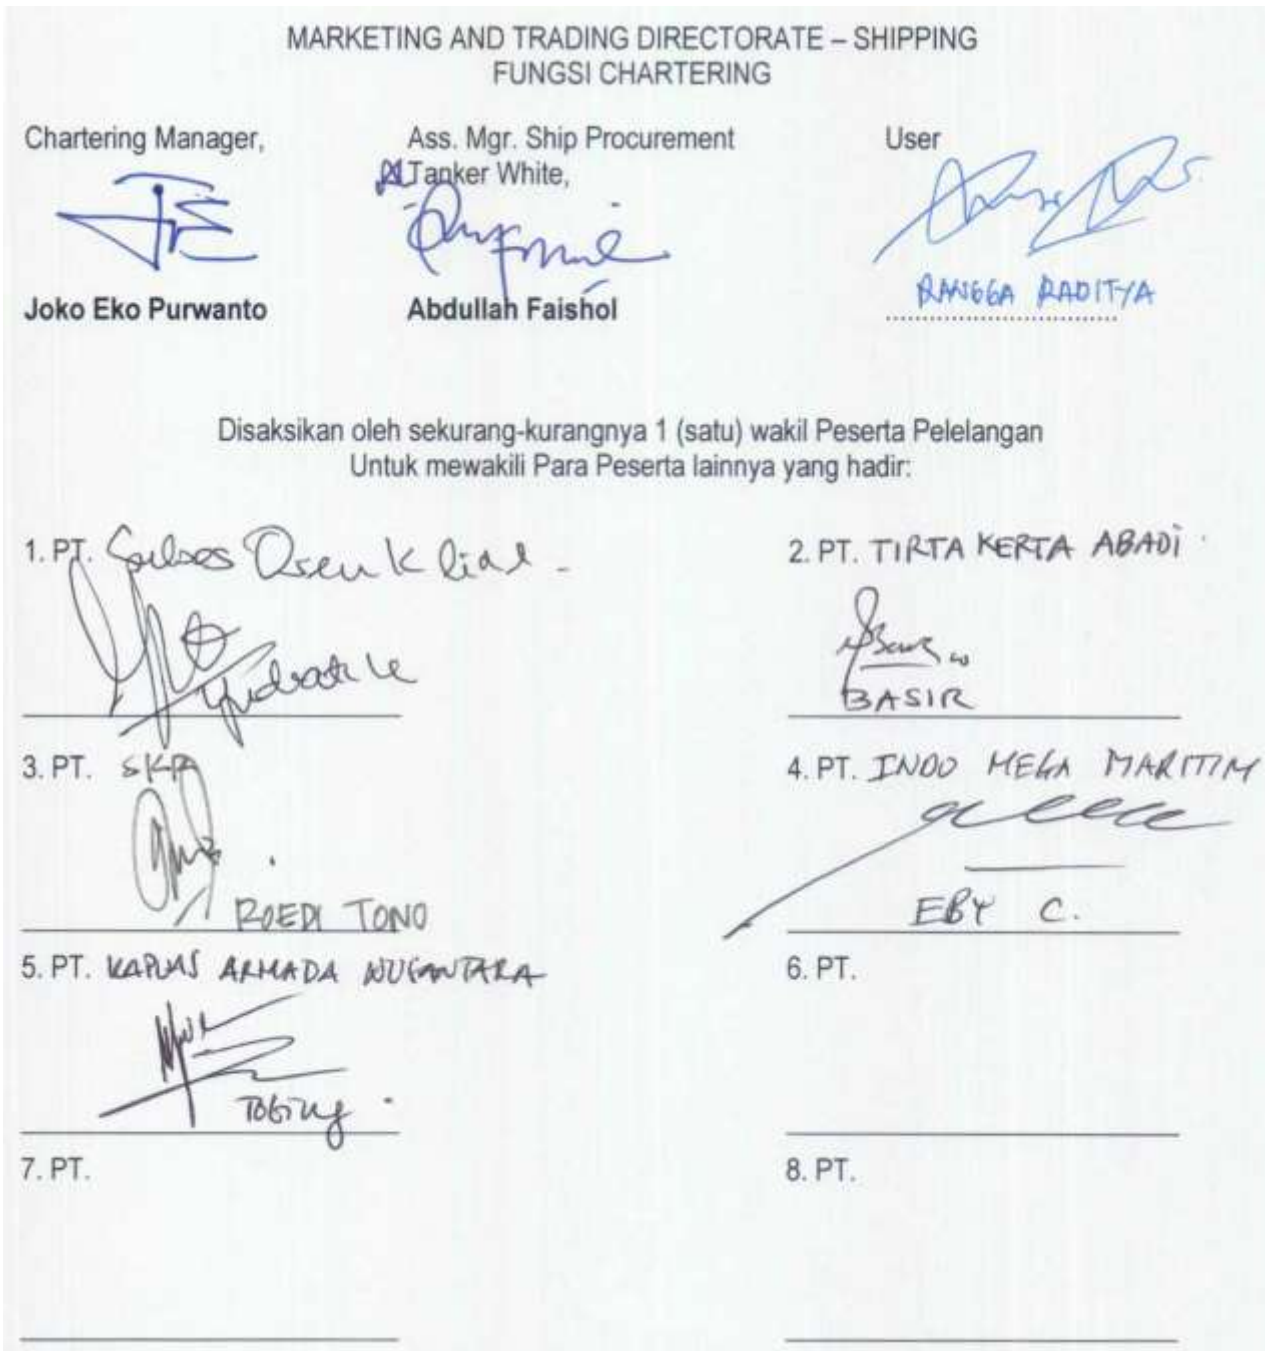 MARKETING AND TRADING DIRECTORATE – SHIPPING
FUNGSI CHARTERING
Chartering Manager,
Ass. Mgr. Ship Procurement
Tanker White,
User
Joko Eko Purwanto
Abdullah Faishol
RANGGA RADITYA
Disaksikan oleh sekurang-kurangnya 1 (satu) wakil Peserta Pelelangan
Untuk mewakili Para Peserta lainnya yang hadir:
1. PT. Sukses
2. PT. TIRTA KERTA ABADI
BASIR
3. PT. SKPA
ROEDI TONO
4. PT. INDO MEGA MARITIM
EBY C.
5. PT. KAPUAS ARMADA NUSANTARA
TOBING
6. PT.
7. PT.
8. PT.